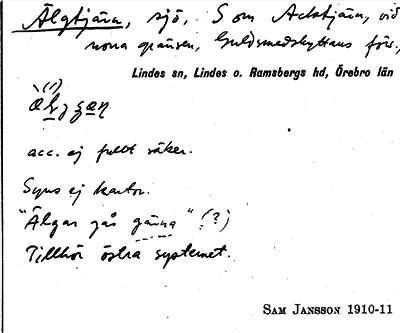 Älgtjärn, sjö, S om Acktjärn, vid
norra gränsen, Guldsmedshyttans förs.,
Lindes sn, Lindes o. Ramsbergs hd, Örebro län
acc. ej fullt säker.
Syns ej kartor.
"Älgar gås gärna" (?)
Tillhör östra systemet.
SAM JANSSON 1910-11